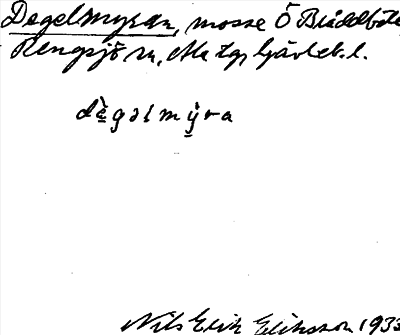 Degelmyran, mosse Ö Bräddbota
Rengsjö sn, Ma tg, Gävleb. l.
dègəlmy̆ra
Nils Erik Eliksson 1933